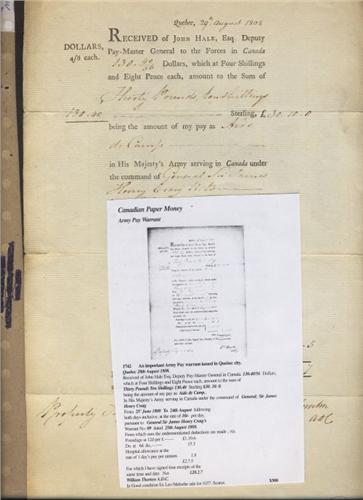 Quebec, 29th August 1808
RECEIVED of JOHN HALE, Esq. Deputy
DOLLARS,
4/8 each.
Pay-Master General to the Forces in Canada
130. 40/56 Dollars, which at Four Shillings
and Eight Pence each, amount to the Sum of
Thirty Pounds, ten shillings
130.40 Sterling, £30.10.0
being the amount of my pay as Aide
de Camp
in His Majesty's Army serving in Canada under
the command of General Sir James
Henry Craig K.B.
Canadian Paper Money
Army Pay Warrant
1742 An important Army Pay warrant issued in Quebec city.
Quebec 29th August 1808,
Received of John Hale Esq, Deputy Pay-Master General in Canada 130.40/56 Dollars,
which at Four Shillings and Eight Pence each, amount to the sum of
Thirty Pounds Ten Shillings 130.40 Sterling £30. 10. 0
being the amount of my pay as Aide de Camp,
In His Majesty's Army serving in Canada under the command of General, Sir James
Henry Craig
From 25th June 1808 To 24th August following
both days inclusive, at the rate of 10/- per day,
pursuant to General Sir James Henry Craig's
Warrant No 89 dated 25th August 1808,
From which sum the undermentioned deductions are made, viz.
Poundage at 12d per £
Do at 6d do.
Hospital allowance at the
rate of 1 day's pay per annum
For which I have signed four receipts of the
same time and date. Net
William Thornton A.D.C
In Good condition
$300